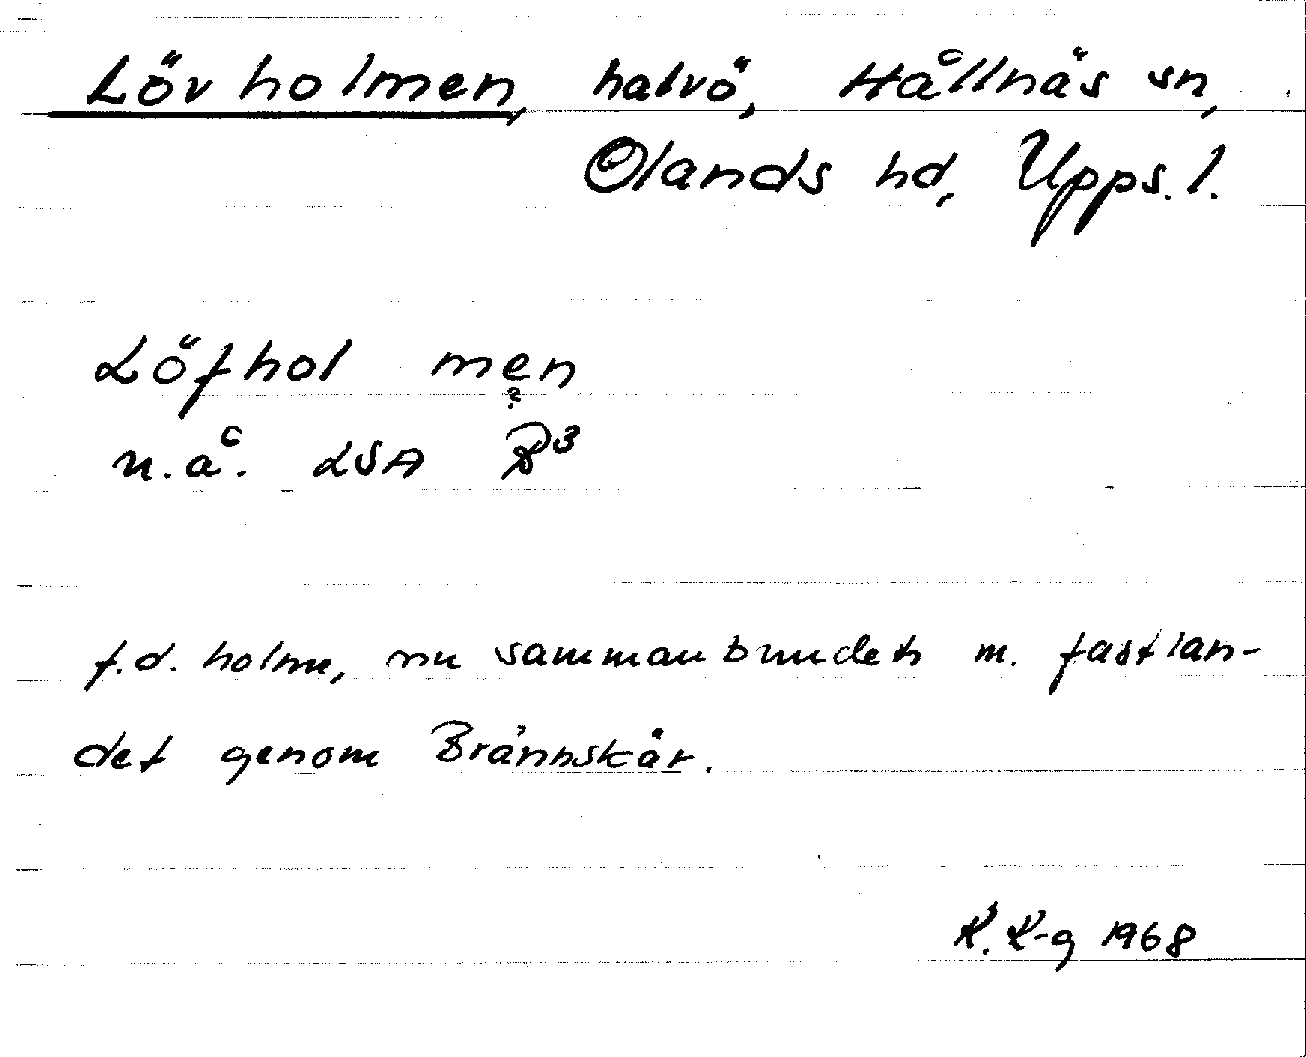 Lövholmen, halvö, Hållnäs sn,
Olands hd, Upps. l.
Löfhol men
?
u.å. LSA B³
f.d. holme, nu sammanbundet m. fastlan-
det genom Brännskär.
K. K-g 1968